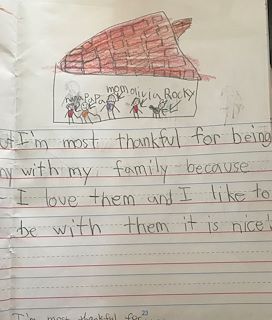 nana papa mom olivia Rocky
ut I'm most thankful for being
ny with my family because
I love them and I like to
be with them it is nice!
23
I'm most thankful for